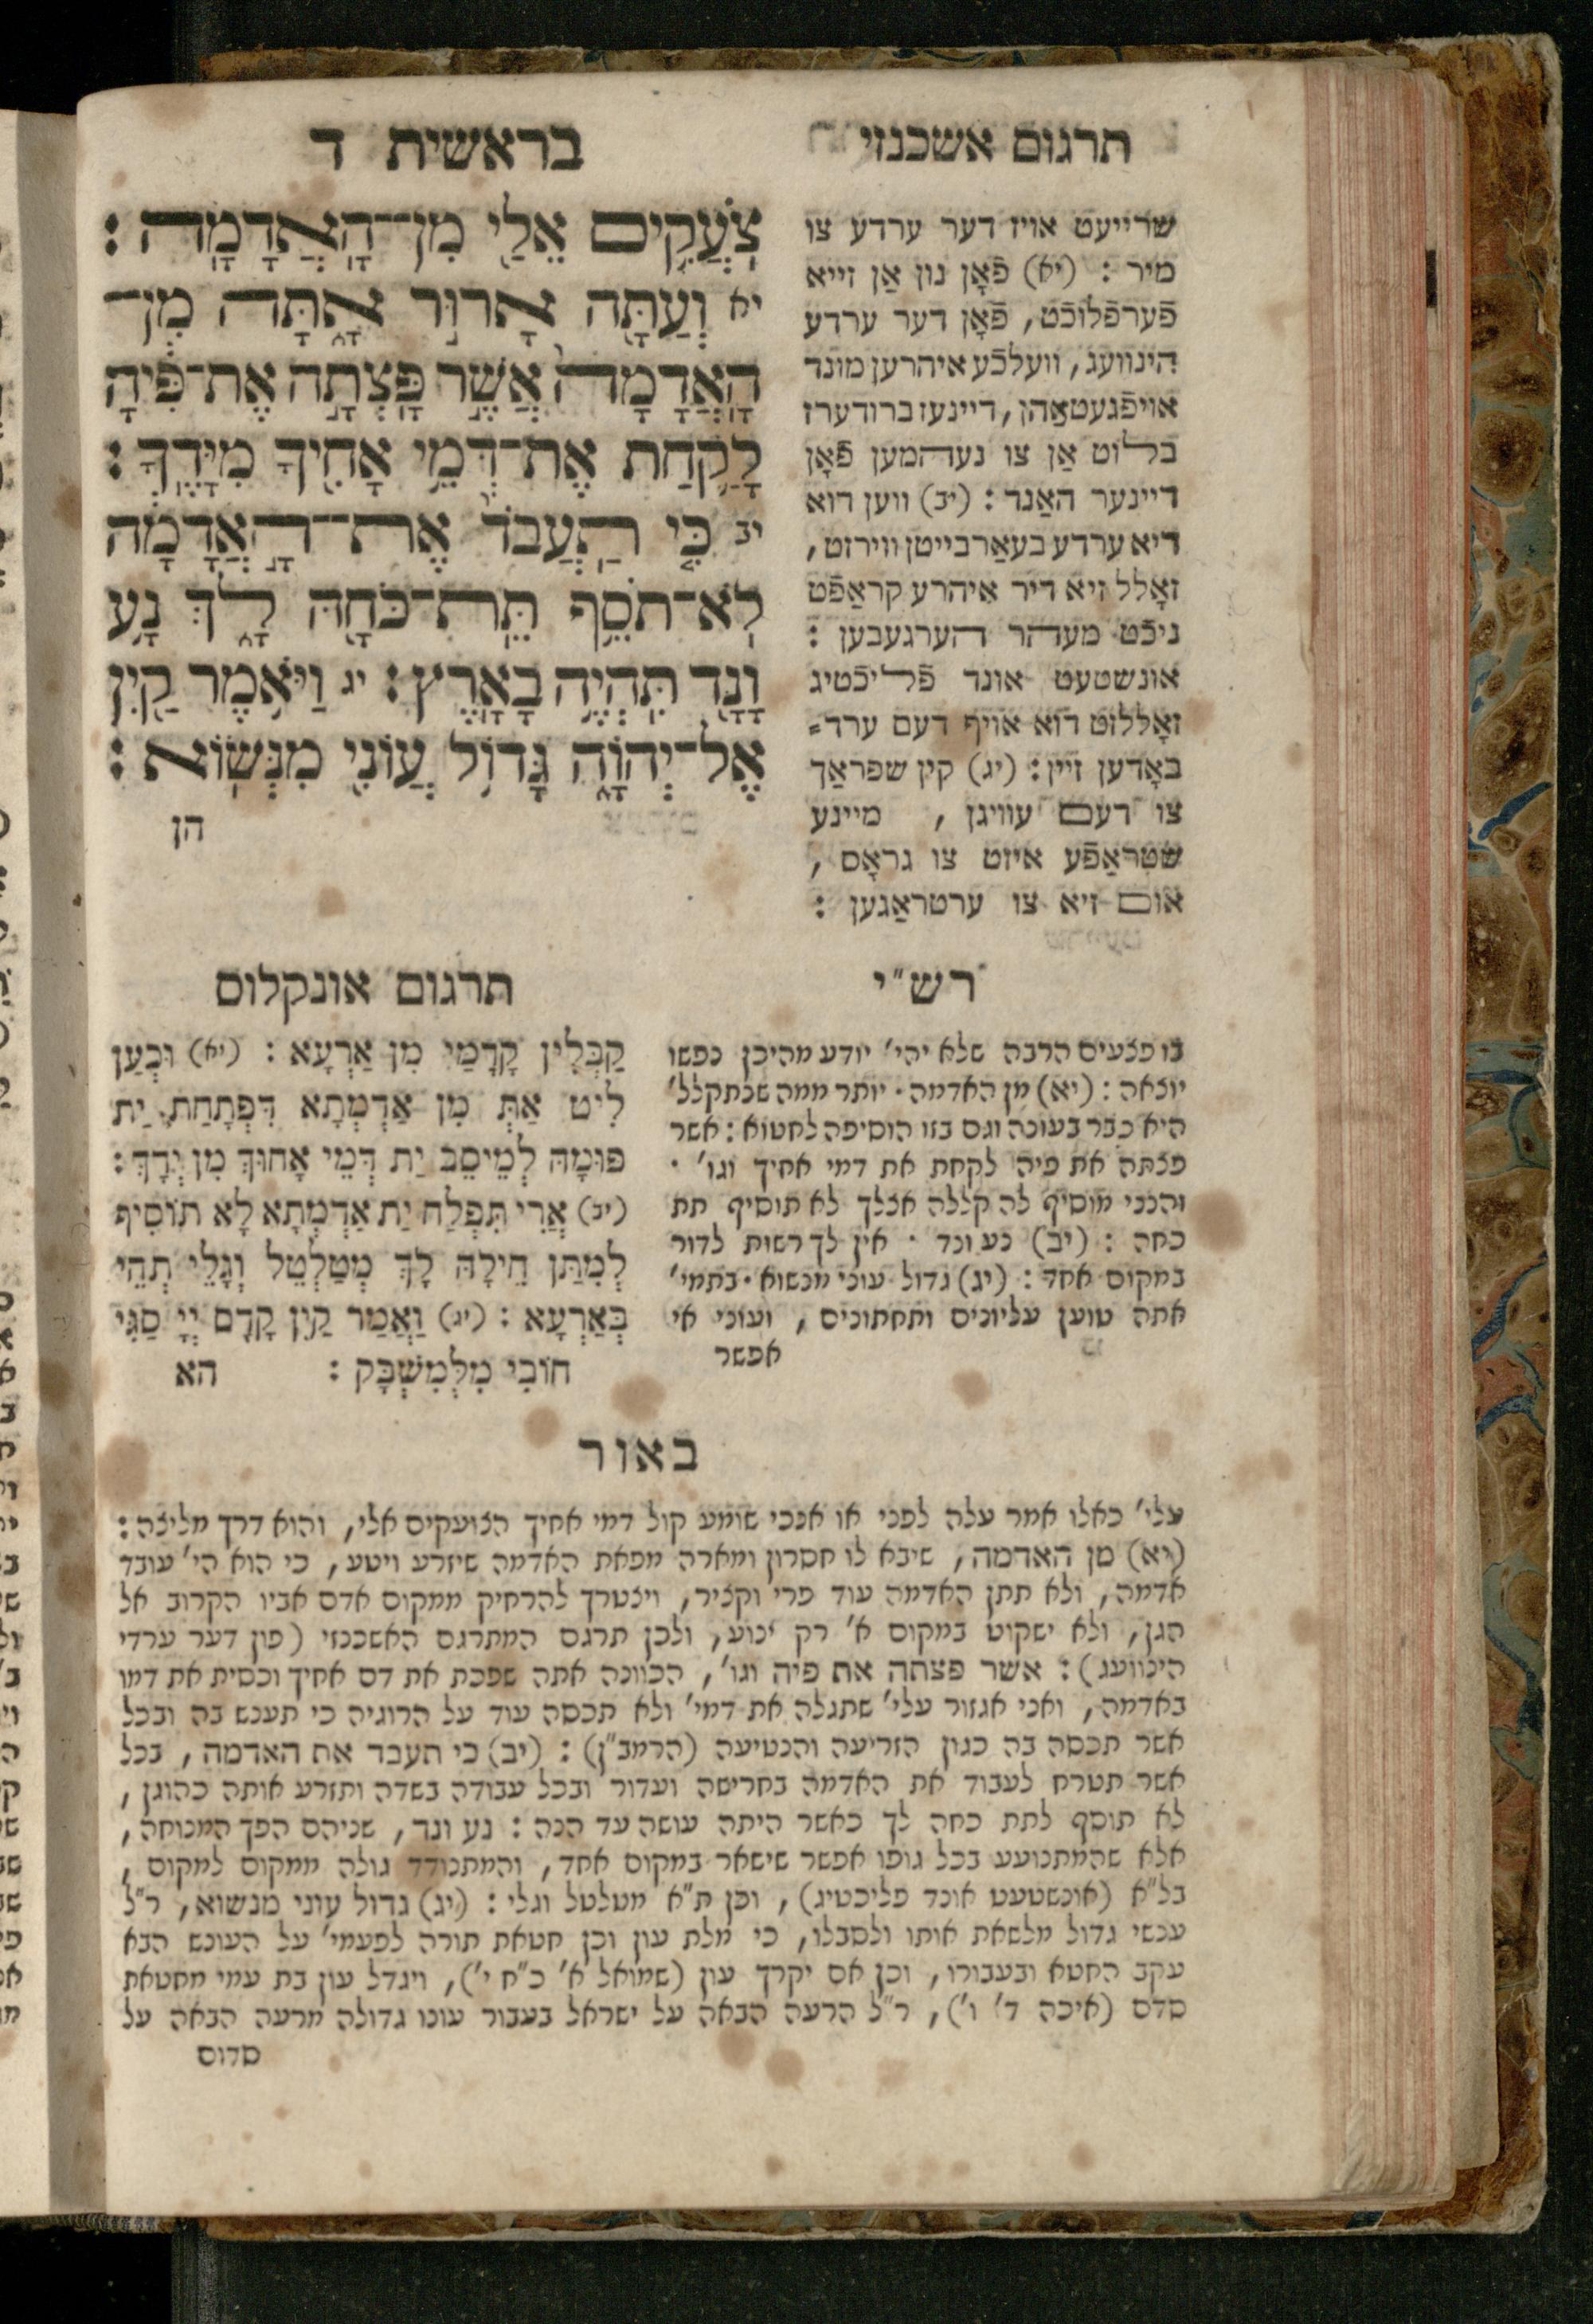 תרגום אשכנזי
בראשית ד
צֹעֲקִים אֵלַי מִן־הָאֲדָמָה:
יא וְעַתָּה אָרוּר אָתָּה מִן־
הָאֲדָמָה אֲשֶׁר פָּצְתָה אֶת־פִּיהָ
לָקַחַת אֶת־דְּמֵי אָחִיךָ מִיָּדֶךָ:
יב כִּי תַעֲבֹד אֶת־הָאֲדָמָה
לֹא־תֹסֵף תֵּת־כֹּחָהּ לָךְ נָע
וָנָד תִּהְיֶה בָאָרֶץ: יג וַיֹּאמֶר קַיִן
אֶל־יְהוָה גָּדוֹל עֲוֹנִי מִנְּשׂוֹא:
הן
שרייעט אויז דער ערדע צו
מיר: (יא) פֿאָן נון אַן זייא
פֿערפֿלוכֿט, פֿאָן דער ערדע
הינוועג, וועלכֿע איהרען מונד
אויפֿגעטאַהן, דיינעז ברודערז
בלוט אַן צו נעהמען פֿאָן
דיינער האַנד: (יב) ווען דוא
דיא ערדע בעאַרבייטן ווירזט,
זאָלל זיא דיר איהרע קראַפֿט
ניכֿט מעהר הערגעבען:
אונשטעט אונד פֿליכֿטיג
זאָללזט דוא אויף דעם ערד=
באָדען זיין: (יג) קין שפראַך
צו דעם עוויגן, מיינע
שטראַפֿע איזט צו גראָס,
אום זיא צו ערטראַגען:
רש״י
בו פצעים הרבה שלא יהי׳ יודע מהיכן נפשו
יוצאה: (יא) מן האדמה. יותר ממה שנתקלל׳
היא כבר בעונה וגם בזו הוסיפה לחטוא: אשר
פצתה את פיה לקחת את דמי אחיך וגו׳.
והנני מוסיף לה קללה אצלך לא תוסיף תת
כחה: (יב) נע ונד. אין לך רשות לדור
במקום אחד: (יג) גדול עוני מנשוא. בתמי׳
אתה טוען עליונים ותחתונים, ועוני אי
אפשר
תרגום אונקלוס
קַבְּלִין קֳדָמַי מִן אַרְעָא: (יא) וּכְעַן
לִיט אַתְּ מִן אַדְמְתָא דִּפְתָחַת יַת
פּוּמָהּ לְמֵיסַב יַת דְּמֵי אָחוּךְ מִן יְדָךְ:
(יב) אֲרֵי תִפְלַח יַת אַדְמְתָא לָא תוֹסִיף
לְמִתַּן חֵילָהּ לָךְ מְטַלְטֵל וְגָלֵי תְהֵי
בְּאַרְעָא: (יג) וַאֲמַר קַיִן קֳדָם יְיָ סַגִּי
חוֹבִי מִלְּמִשְׁבָּק:
הא
באור
עלי׳ כאלו אמר עלה לפני או אנכי שומע קול דמי אחיך הצועקים אלי, והוא דרך מליצה:
(יא) מן האדמה, שיבא לו חסרון ומארה מפאת האדמה שיזרע ויטע, כי הוא הי׳ עובד
אדמה, ולא תתן האדמה עוד פרי וקציר, ויצטרך להרחיק ממקום אדם אביו הקרוב אל
הגן, ולא ישקוט במקום א׳ רק ינוע, ולכן תרגם המתרגם האשכנזי (פון דער ערדי
הינוועג): אשר פצתה את פיה וגו׳, הכוונה אתה שפכת את דם אחיך וכסית את דמו
באדמה, ואני אגזור עלי׳ שתגלה את דמי׳ ולא תכסה עוד על הרוגיה כי תענש בה ובכל
אשר תכסה בה כגון הזריעה והנטיעה (הרמב״ן): (יב) כי תעבד את האדמה, בכל
אשר תטרח לעבוד את האדמה בחרישה ועדור ובכל עבודה בשדה ותזרע אותה כהוגן,
לא תוסף לתת כחה לך כאשר היתה עושה עד הנה: נע ונד, שניהם הפך המנוחה,
אלא שהמתנועע בכל גופו אפשר שישאר במקום אחד, והמתנודד גולה ממקום למקום,
בל״א (אונשטעט אונד פליכטיג), וכן ת״א מטלטל וגלי: (יג) גדול עוני מנשוא, ר״ל
ענשי גדול מלשאת אותו ולסבלו, כי מלת עון וכן חטאת תורה לפעמי׳ על העונש הבא
עקב החטא ובעבורו, וכן אם יקרך עון (שמואל א׳ כ״ח י׳), ויגדל עון בת עמי מחטאת
סדם (איכה ד׳ ו׳), ר״ל הרעה הבאה על ישראל בעבור עונו גדולה מרעה הבאה על
סדום